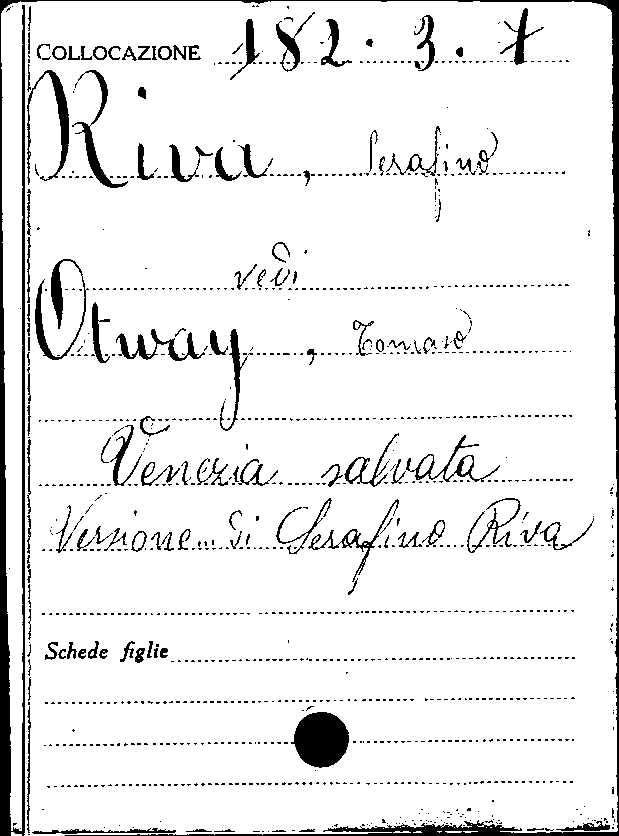 COLLOCAZIONE 182. 3. 7
Riva, Serafino
vedi
Otway, Tomaso
Venezia salvata
Versione... di Serafino Riva
Schede figlie